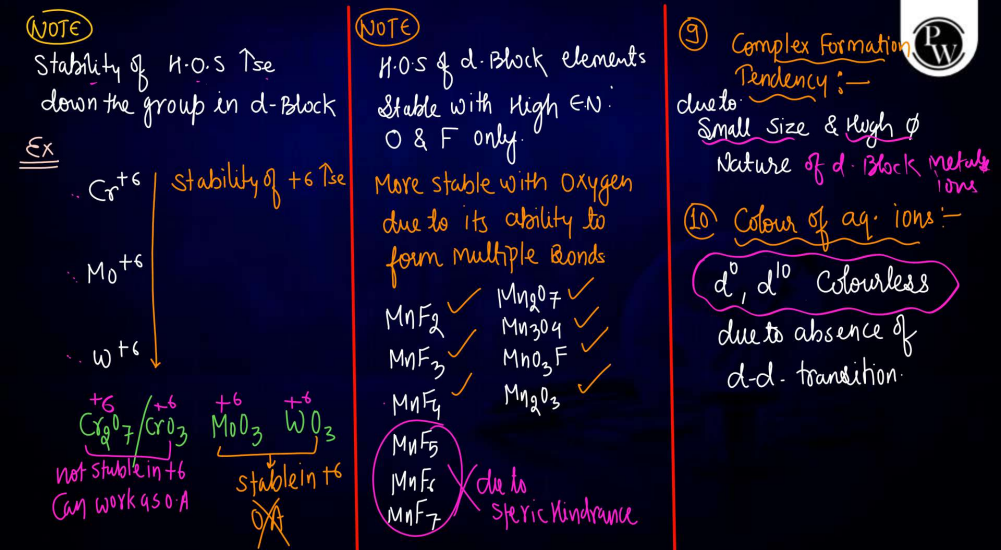 NOTE
Stability of H.O.S ↑se
down the group in d-Block
Ex
Cr+6
Stability of +6 ↑se
Mo+6
W+6
+6 +6 +6 +6
Cr2O7/CrO3 MoO3 WO3
not stable in +6
Can work as O.A
stable in +6
OA
NOTE
H.O.S of d-Block elements
Stable with High E.N:
O & F only.
More stable with Oxygen
due to its ability to
form Multiple Bonds
MnF2 Mn2O7
MnF3 Mn3O4
MnF4 MnO3F
Mn2O3
MnF5
MnF6
MnF7
due to
Steric Hindrance
9 Complex Formation
Tendency :-
due to
Small Size & High φ
Nature of d-Block metals
ions
10 Colour of aq. ions :-
d0, d10 Colourless
due to absence of
d-d- transition.
PW